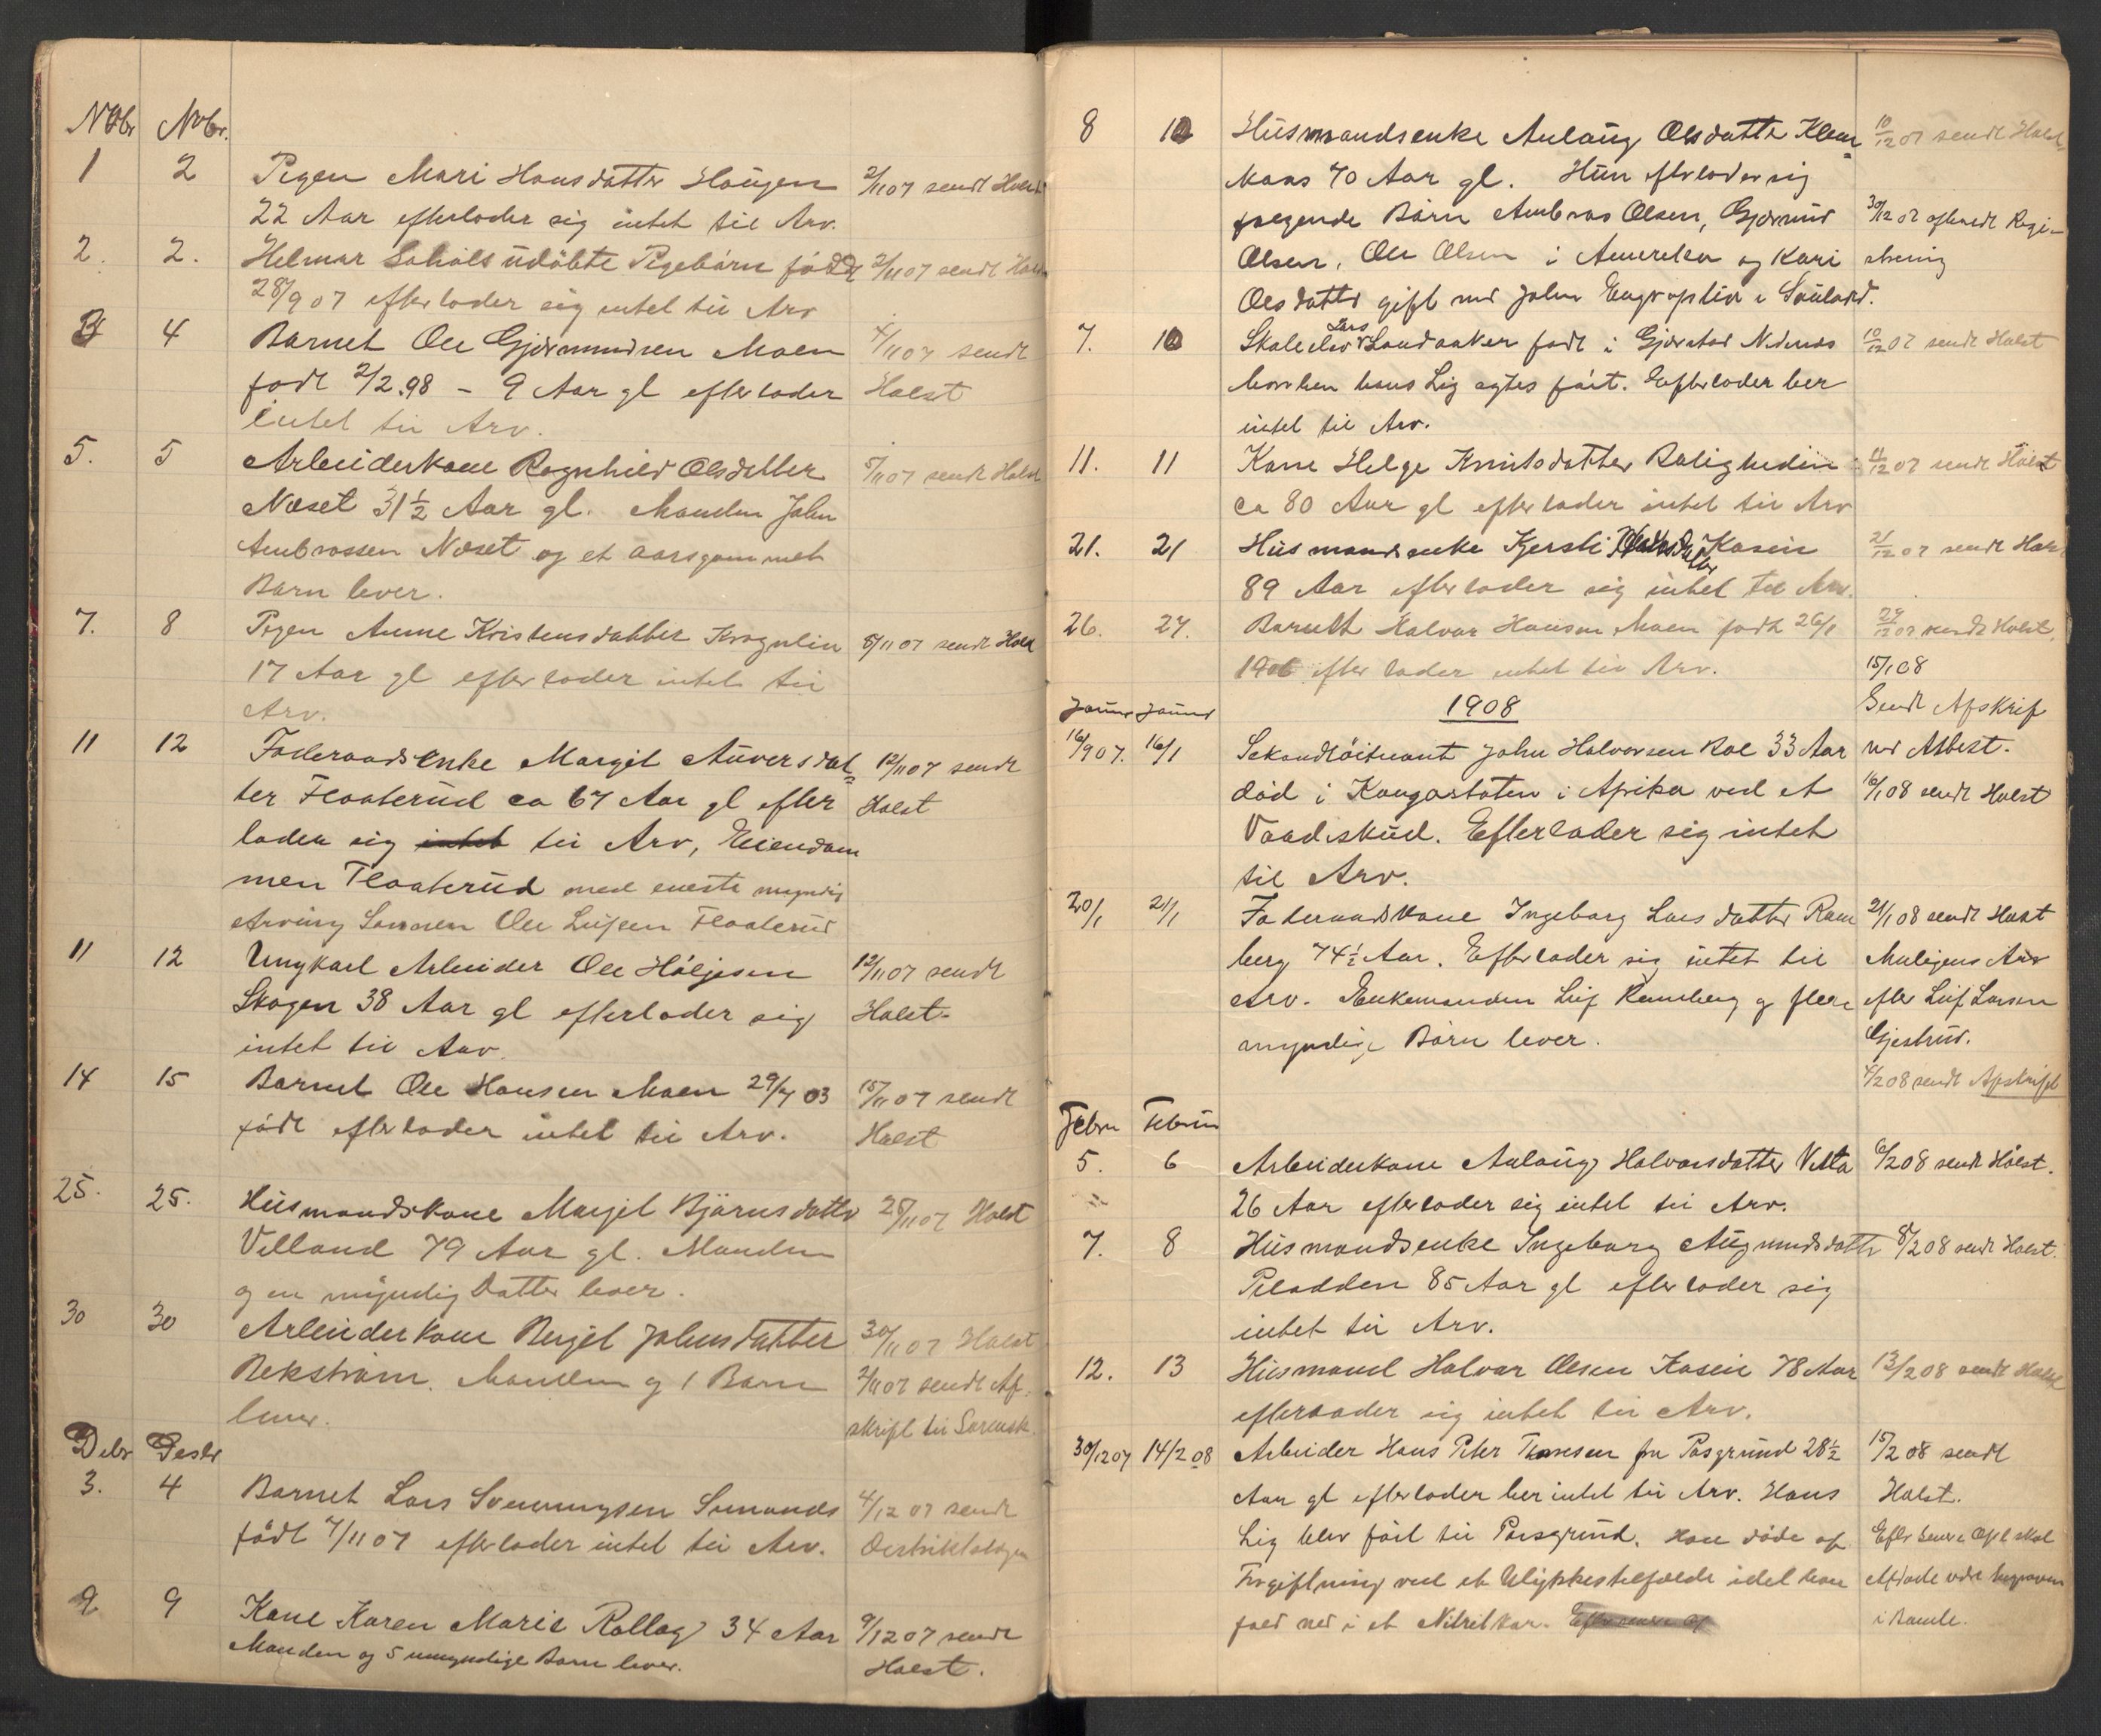 Novbr Novbr.
1 2 Pigen Mari Hansdatter Haugen 2/11 07 sendt Holst
22 Aar efterlader sig intet til Arv.
2. 2. Helmar udöbte Pigebarn född 2/11 07 sendt
28/9 07 efterlader sig intet til Arv
3 4 Barnet Ole Gjermundsen Moen 4/11 07 sendt
fodt 2/2.98 - 9 Aar gl efterlader Holst
intet til Arv.
5. 5 Arbeiderkone Ragnhild Olsdatter 5/11 07 sendt Holst
Næset 31½ Aar gl. Manden John
Ambrossen Næset og et aarsgammelt
Barn lever.
7. 8 Pigen Anne Kristensdatter 8/11 07 sendt Holst
17 Aar gl efterlader intet til
Arv.
11 12 Föderaadsenke Margit Auversdat= 12/11 07 sendt
ter Flaaterud ca 67 Aar gl efter Holst
lader sig intet til Arv, Eiendom
men Flaaterud med eneste myndig
Arving Sönnen Ole Leifsen Flaaterud
11 12 Ungkarl Arbeider Ole Höljesen 12/11 07 sendt
Skogen 38 Aar gl efterlader sig Holst.
intet til Arv.
14 15 Barnet Ole Hansen Moen 29/7 03 15/11 07 sendt
födt efterlader intet til Arv. Holst
25. 25. Husmandskone Margit Björnsdatter 25/11 07 Holst
Villand 79 Aar gl. Manden
og en myndig Datter lever.
30 30 Arbeiderkone Bergit Johnsdatter 30/11 07 Holst
Bekström. Manden og 1 Barn 2/11 07 sendt Af-
lever. skrift til Sorensk.
Debr Desbr
3. 4 Barnet Lars Svenningsen 4/12 07 sendt
födt 7/11 07 efterlader intet til Arv.
9 9 Kone Karen Marie Rollag 34 Aar 9/12 07 sendt
Manden og 5 umyndige Barn lever. Holst.
8 10 Husmandsenke Aulaug Olsdatter Klem= 10/12 07 sendt Holst
Maas 70 Aar gl. Hun efterlader sig
følgende Börn Ambros Olsen, Gjermund 30/12 07 Regi-
Olsen, Ole Olsen i Amerika og Kari strering
Olsdatter gift med John i Sauland.
7. 10 Skoleelev Lars Landaaker fodt i Gjerstad Nedenæs 10/12 07 sendt Holst
hvorhen hans Lig agtes fört. Efterlader her
intet til Arv.
11. 11 Kone Helge Knutsdatter Boligheden 11/12 07 sendt Holst
ca 80 Aar gl efterlader intet til Arv
21. 21 Husmandsenke Kjersti Kasein 21/12 07 sendt Holst
89 Aar efterlader sig intet til Arv.
26. 27. Barnet Halvor Hansen Moen fodt 26/1 27/12 07 sendt Holst.
1906 efterlader intet til Arv. 15/1 08
Januar Januar 1908 Sendt Afskrift
16/9 07. 16/1 Sekondlöitnant John Halvorsen Boe 33 Aar
död i Kongostaten i Afrika ved et 16/1 08 sendt Holst
Vaadeskud. Efterlader sig intet
til Arv.
20/1 21/1 Föderaadskone Ingeborg Larsdatter Ram 21/1 08 sendt Holst
berg 74½ Aar. Efterlader sig intet til Muligens Arv
Arv. Enkemanden Leif Ramberg og flere efter Leif Larsen
myndige Börn lever. Gjestrud.
4/2 08 sendt Afskrift
Febru Februa
5. 6 Arbeiderkone Aulaug Halvorsdatter 6/2 08 sendt Holst.
" 26 Aar efterlader sig intet til Arv.
7. 8 Husmandsenke Ingeborg Augmundsdatter 8/2 08 sendt Holst.
85 Aar gl efterlader sig
intet til Arv.
12. 13 Husmand Halvor Olsen Kasein 78 Aar 13/2 08 sendt Holst
efterlader sig intet til Arv.
30/12 07 14/2 08 Arbeider Hans Peter fra Porsgrund 28½ 15/2 08 sendt
Aar gl efterlader her intet til Arv. Hans Holst.
Lig blev fört til Porsgrund. Han döde af Efter senere Opl skal
Forgiftning ved et Ulykkestilfælde idet han Afdöde være begraven
falt ned i et Nitritkar. Efter senere Op i Bamle.